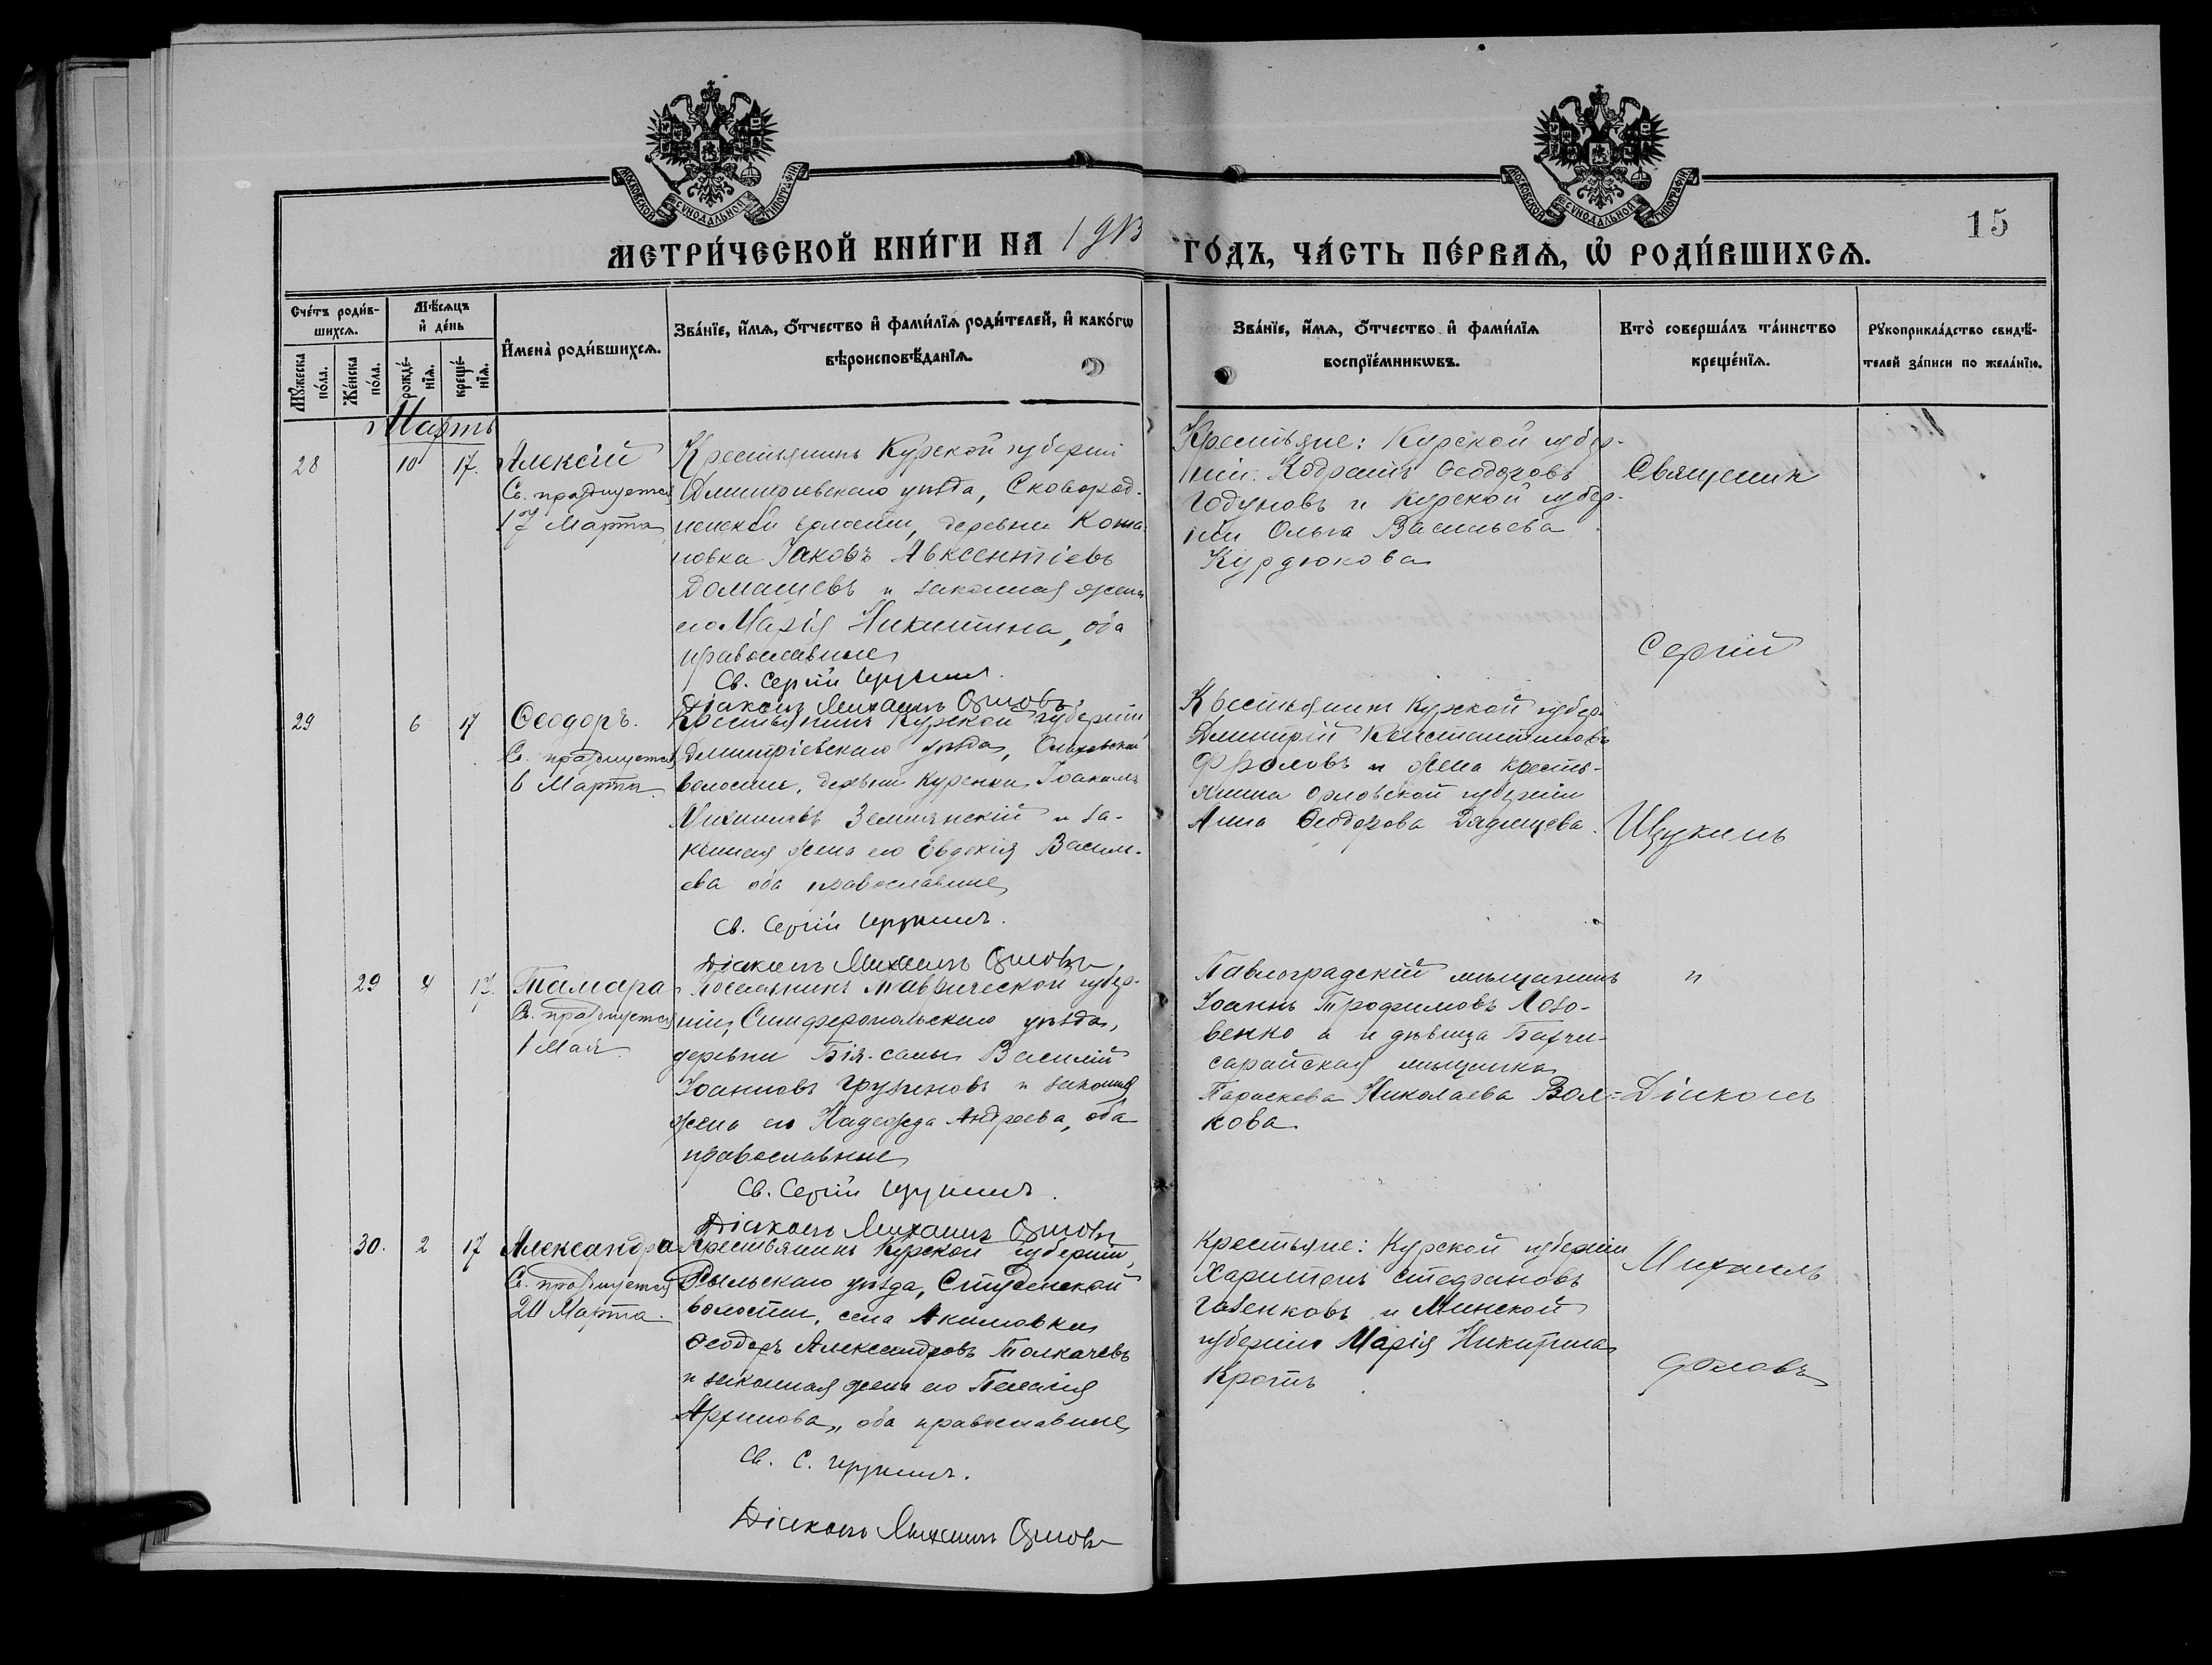 МОСКОВСКОЙ СѴНОДАЛЬНОЙ ТИПОГРАФІИ
МОСКОВСКОЙ СѴНОДАЛЬНОЙ ТИПОГРАФІИ
15
МЕТРИ́ЧЕСКОЙ КНИ́ГИ НА 1913 ГО́ДЪ, ЧА́СТЬ ПЕ́РВАѦ, Ѽ РОДИ́ВШИХСѦ.
Сче́тъ роди́в-
шихсѧ.
Мꙋ́жеска по́ла.
Же́нска по́ла.
Мѣ́сѧцъ
и҆ де́нь
рожде́-
нїѧ.
креще́-
нїѧ.
И҆мена̀ роди́вшихсѧ.
Зва́нїе, и҆́мѧ, ѻ҆́тчество и҆ фами́лїѧ роди́телей, и҆ како́гѡ
вѣроисповѣ́данїѧ.
Зва́нїе, и҆́мѧ, ѻ҆́тчество и҆ фами́лїѧ
воспрїе́мникѡвъ.
Кто̀ соверша́лъ та́инство
креще́нїѧ.
Рꙋкоприкла́дство свидѣ́-
телей за́писи по жела́нїю.
Мартъ
28 10 17.
Алексій
Св. празднуется
17 Марта
Крестьянинъ Курской губерніи
Дмитріевскаго уѣзда, Сковород-
ненской волости, деревни
новка Іаковъ Авксентіевъ
Домашевъ и законная жена
его Марія Никитина, оба
православные
Св. Сергій Щукинъ.
Діаконъ Михаилъ Орловъ.
Крестьяне: Курской губер-
ніи Кодратъ Ѳеодоровъ
Годуновъ и Курской губер-
ніи Ольга Васильева
Курдюкова
Священник
Сергій
29 6 17
Ѳеодоръ.
Св. празднуется
6 Марта.
Крестьянинъ Курской губерніи,
Дмитріевскаго уѣзда,
волости, деревни Куренки Іоакимъ
Михаиловъ и за-
конная жена его Евдокія Василь-
ева оба православные
Св. Сергій Щукинъ.
Діаконъ Михаилъ Орловъ
Крестьянинъ Курской губер.
Димитрій Константиновъ
Фроловъ и жена кресть-
янина Орловской губерніи
Анна Ѳеодорова
Щукинъ
29 4 17.
Тамара
Св. празднуется
1 Мая.
Поселянинъ Таврической губер-
ніи, Симферопольскаго уѣзда,
деревни Бія-салы Василій
Іоанновъ Грузиновъ и законная
жена его Надежда Андреева, оба
православные
Св. Сергій Щукинъ.
Діаконъ Михаилъ Орловъ
Павлоградскій мѣщанинъ
Іоаннъ Трофимовъ Лозо-
венко а и дѣвица Бахчи-
сарайская мѣщанка
Параскева Николаева Вол-
кова.
"
Діаконъ
30. 2 17
Александра
Св. празднуется
20 Марта.
Крестьянинъ Курской губерніи,
Рыльскаго уѣзда, Студенской
волости, села Акимовки
Ѳеодоръ Александровъ Толкачевъ
и законная жена его Пелагія
Архипова, оба православные
Св. С. Щукинъ.
Діаконъ Михаилъ Орловъ
Крестьяне: Курской губерніи
Харитонъ Стефановъ
Газенковъ и Минской
губерніи Марія Никитина
Кротъ
Михаилъ
Орловъ